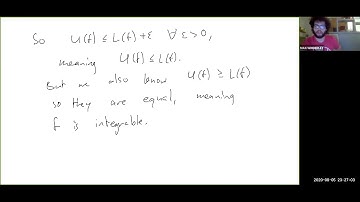 So U(f) ≤ L(f) + ε ∀ ε > 0,
meaning U(f) ≤ L(f).
But we also know U(f) ≥ L(f)
so they are equal, meaning
f is integrable.
2020-08-05 23:27:03